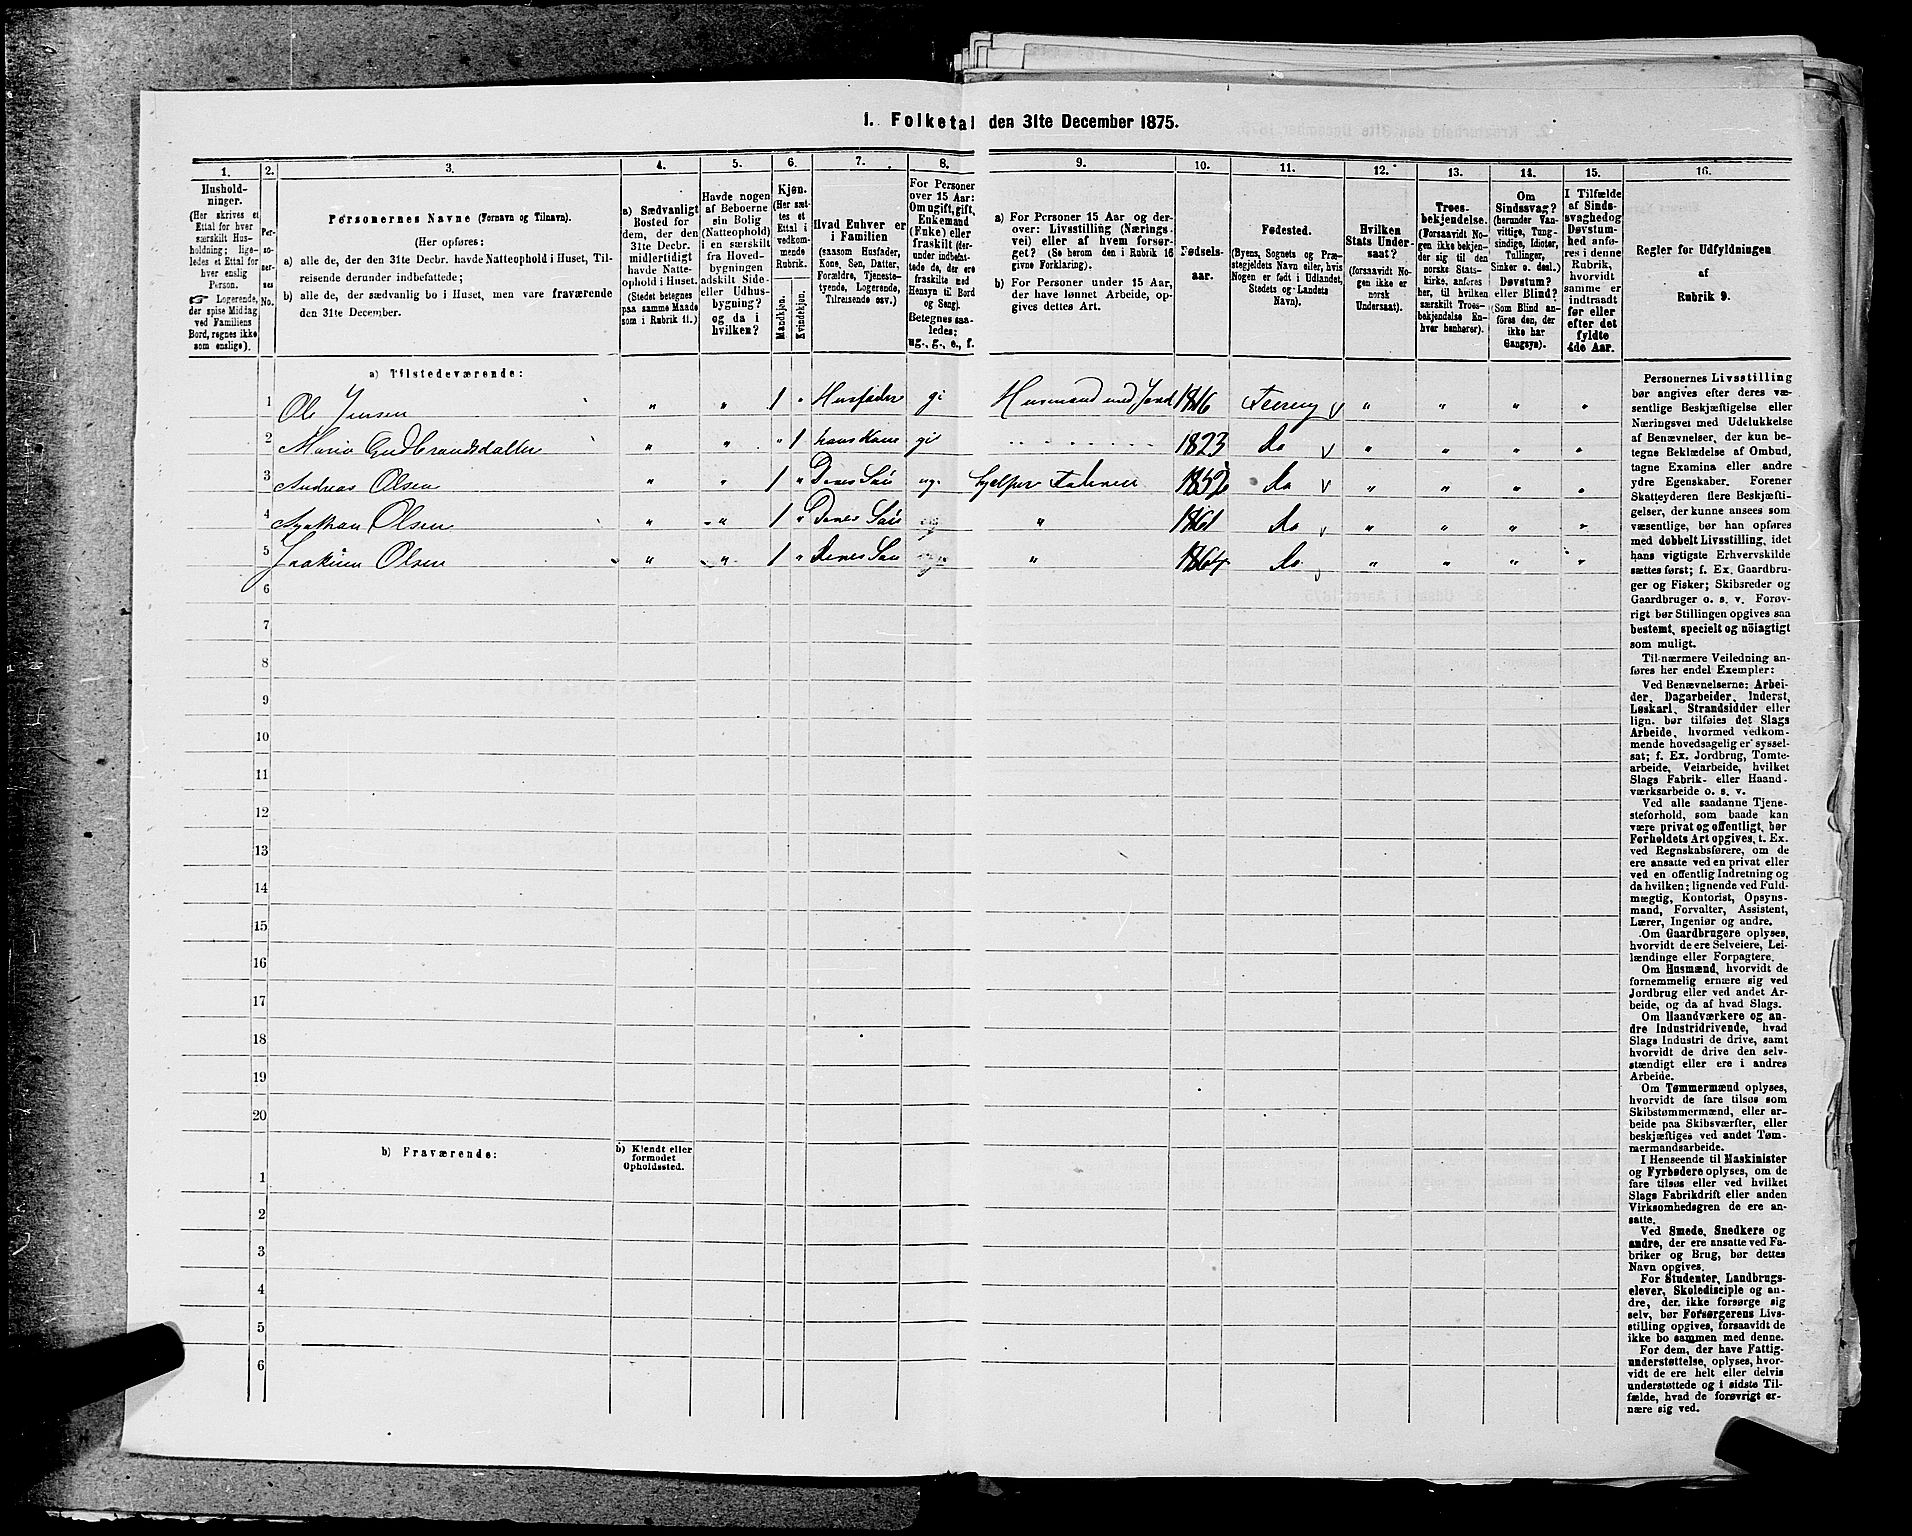 1. Folketal den 31te December 1875.
1. 2. 3. 4. 5. 6. 7. 8. 9. 10. 11. 12. 13. 14. 15. 16.
Hushold-
ninger.
(Her skrives et
Ettal for hver
særskilt Hus-
holdning; lige-
ledes et Ettal for
hver enslig
Person.
☞ Logerende,
der spise Middag
ved Familiens
Bord, regnes ikke
som enslige).
Per-
so-
ner-
nes
No.
Personernes Navne (Fornavn og Tilnavn).
(Her opføres:
a) alle de, der den 31te Decbr. havde Natteophold i Huset, Til-
reisende derunder indbefattede;
b) alle de, der sædvanlig bo i Huset, men vare fraværende
den 31te December.
a) Sædvanligt
Bosted for
dem, der den
31te Decbr.
midlertidigt
havde Natte-
ophold i Huset.
(Stedet betegnes
paa samme Maade
som i Rubrik 11.)
Havde nogen
af Beboerne
sin Bolig
(Natteophold)
i en særskilt
fra Hoved-
bygningen
adskilt Side-
eller Udhus-
bygning?
og da i
hvilken?
Kjøn.
(Her sæt-
tes et
Ettal i
vedkom-
mende
Rubrik.
Mandkjøn.
Kvindekjøn.
Hvad Enhver er
i Familien
(saasom Husfader,
Kone, Søn, Datter,
Forældre, Tjeneste-
tyende, Logerende,
Tilreisende osv.)
For Personer
over 15 Aar:
Om ugift, gift,
Enkemand
(Enke) eller
fraskilt (der-
under indbefat-
tede de, der ere
fraskilte med
Hensyn til Bord
og Seng).
Betegnes saa-
ledes:
ug., g., e., f.
a) For Personer 15 Aar og der-
over: Livsstilling (Nærings-
vei) eller af hvem forsør-
get? (Se herom den i Rubrik 16
givne Forklaring).
b) For Personer under 15 Aar,
der have lønnet Arbeide, op-
gives dettes Art.
Fødsels-
aar.
Fødested.
(Byens, Sognets og Præ-
stegjeldets Navn eller, hvis
Nogen er født i Udlandet,
Stedets og Landets
Navn).
Hvilken
Stats Under-
saat?
(forsaavidt No-
gen ikke er
norsk
Undersaat).
Troes-
bekjendelse.
(Forsaavidt No-
gen ikke bekjen-
der sig til den
norske Stats-
kirke, anføres
her, til hvilken
særskilt Troes-
bekjendelse En-
hver henhører).
Om
Sindssvag?
(herunder Van-
vittige, Tung-
sindige, Idioter,
Tullinger,
Sinker o. desl.)
Døvstum?
eller Blind?
(Som Blind an-
føres den, der
ikke har
Gangsyn).
I Tilfælde
af Sinds-
svaghed og
Døvstum-
hed anfø-
res i denne
Rubrik,
hvorvidt
samme er
indtraadt
før eller
efter det
fyldte
4de Aar.
Regler for Udfyldningen
af
Rubrik 9.
a) Tilstedeværende:
1 Ole Jensen " " 1 Husfader gi Husmand med Jord 1816 Feiring v " " " "
2 Maria Gudbrandsdatter " " " 1 hans Kone gi 1823 do v " " " "
3 Andreas Olsen " " 1 " Deres Søn ug. hjelper Faderen 1852 do v " " " "
4 Olsen " " 1 " Deres Søn " 1861 do v " " " "
5 Joakim Olsen " " 1 " Deres Søn " 1864 do v " " " "
6
7
8
9
10
11
12
13
14
15
16
17
18
19
20
b) Fraværende:
b) Kjendt eller
formodet
Opholdssted.
1
2
3
4
5
6
Personernes Livsstilling
bør angives efter deres væ-
sentlige Beskjæftigelse eller
Næringsvei med Udelukkelse
af Benævnelser, der kun be-
tegne Beklædelse af Ombud,
tagne Examina eller andre
ydre Egenskaber. Forener
Skatteyderen flere Beskjæfti-
gelser, der kunne ansees som
væsentlige, bør han opføres
med dobbelt Livsstilling, idet
hans vigtigste Erhvervskilde
sættes først; f. Ex. Gaardbru-
ger og Fisker; Skibsreder og
Gaardbruger o. s. v. Forøv-
rigt bør Stillingen opgives saa
bestemt, specielt og nöiagtigt
som muligt.
Til nærmere Veiledning an-
føres her endel Exempler:
Ved Benævnelserne: Arbei-
der, Dagarbeider, Inderst,
Løskarl, Strandsidder eller
lign. bør tilføies det Slags
Arbeide, hvormed vedkom-
mende hovedsagelig er syssel-
sat; f. Ex. Jordbrug, Tomte-
arbeide, Veiarbeide, hvilket
Slags Fabrik- eller Haand-
værksarbeide o. s. v.
Ved alle saadanne Tjene-
steforhold, som baade kan
være privat og offentligt, bør
Forholdets Art opgives, t. Ex.
ved Regnskabsførere, om de
ere ansatte ved en privat eller
ved en offentlig Indretning og
da hvilken; lignende ved Fuld-
mægtig, Kontorist, Opsyns-
mand, Forvalter, Assistent,
Lærer, Ingeniør og andre.
Om Gaardbrugere oplyses,
hvorvidt de ere Selveiere, Lei-
lændinge eller Forpagtere.
Om Husmænd, hvorvidt de
fornemmelig ernære sig ved
Jordbrug eller ved andet Ar-
beide, og da af hvad Slags.
Om Haandværkere og an-
dre Industridrivende, hvad
Slags Industri de drive, samt
hvorvidt de drive den selv-
stændigt eller ere i andres
Arbeide.
Om Tømmermænd oplyses,
hvorvidt de fare tilsøs som
Skibstømmermænd, eller ar-
beide paa Skibsværfter, eller
beskjæftiges ved andet Tøm-
mermandsarbeide.
I Henseende til Maskinister
og Fyrbødere oplyses, om de
fare tilsøs eller ved hvilket
Slags Fabrikdrift eller anden
Virksomhedsgren de ere an-
satte.
Ved Smede, Snedkere og
andre, der ere ansatte ved Fa-
briker og Brug, bør dettes
Navn opgives.
For Studenter, Landbrugs-
elever, Skoledisciple og an-
dre, der ikke forsørge sig
selv, bør Forsørgerens Livs-
stilling opgives, forsaavidt de
ikke bo sammen med denne.
For dem, der have Fattig-
understøttelse, oplyses, hvor-
vidt de ere helt eller delvis
understøttede og i sidste Til-
fælde, hvad de forøvrigt er-
nære sig ved.